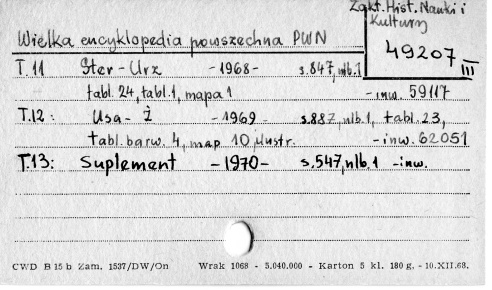 Zakł. Hist. Nauki i
Kultury
Wielka encyklopedia powszechna PWN
49207 III
T.11 Ster-Urz -1968- s.847, nlb.1
tabl. 24, tabl. 1, mapa 1 -inw. 59117
T.12: Usa-Ż -1969- s.887, nlb.1, tabl. 23,
tabl. barw. 4, map 10, ilustr. -inw. 62051
T.13: Suplement -1970- s.547, nlb.1 -inw.
CWD B 15 b Zam. 1537/DW/On Wrak 1068 - 5.040.000 - Karton 5 kl. 180 g. - 10.XII.68.